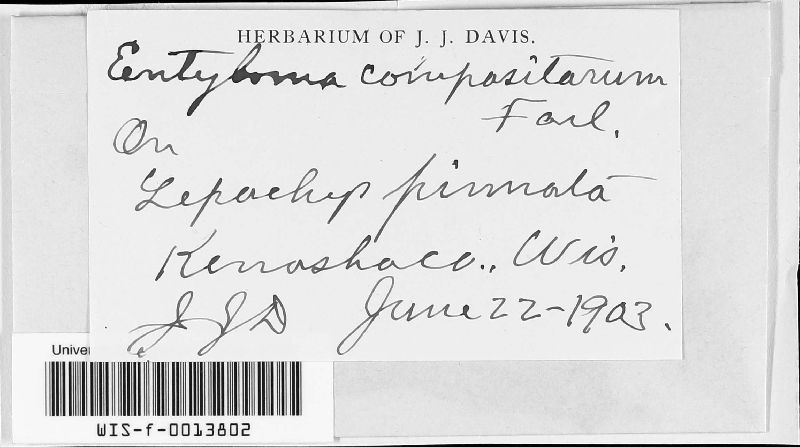 HERBARIUM OF J. J. DAVIS.
Entyloma compositarum
Farl.
On
Lepachys pinnata
Kenosha co., Wis.
J J D June 22-1903.
Univer
WIS-f-0013802